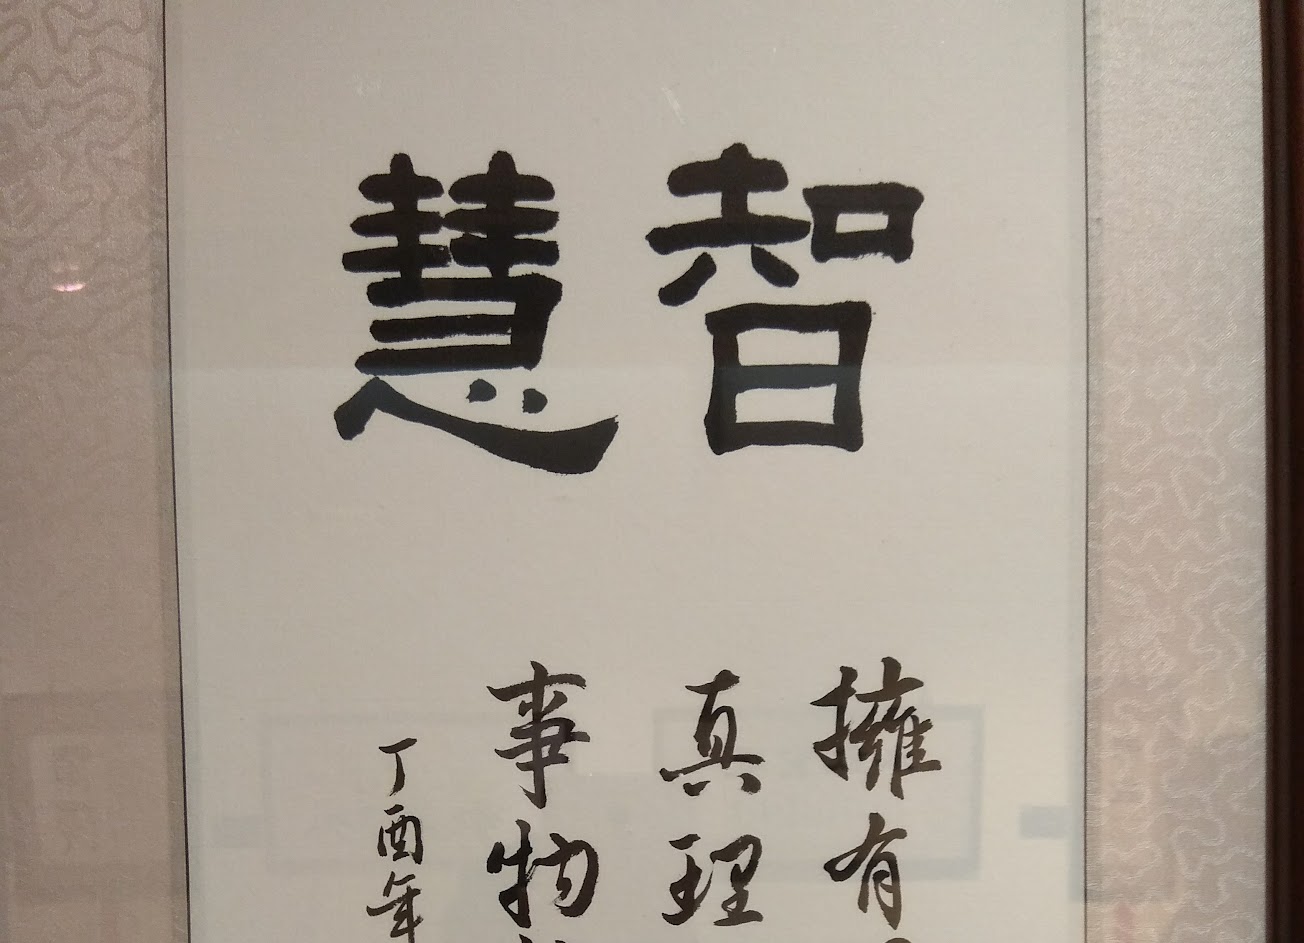 智慧
擁有
真理
事物
丁酉年